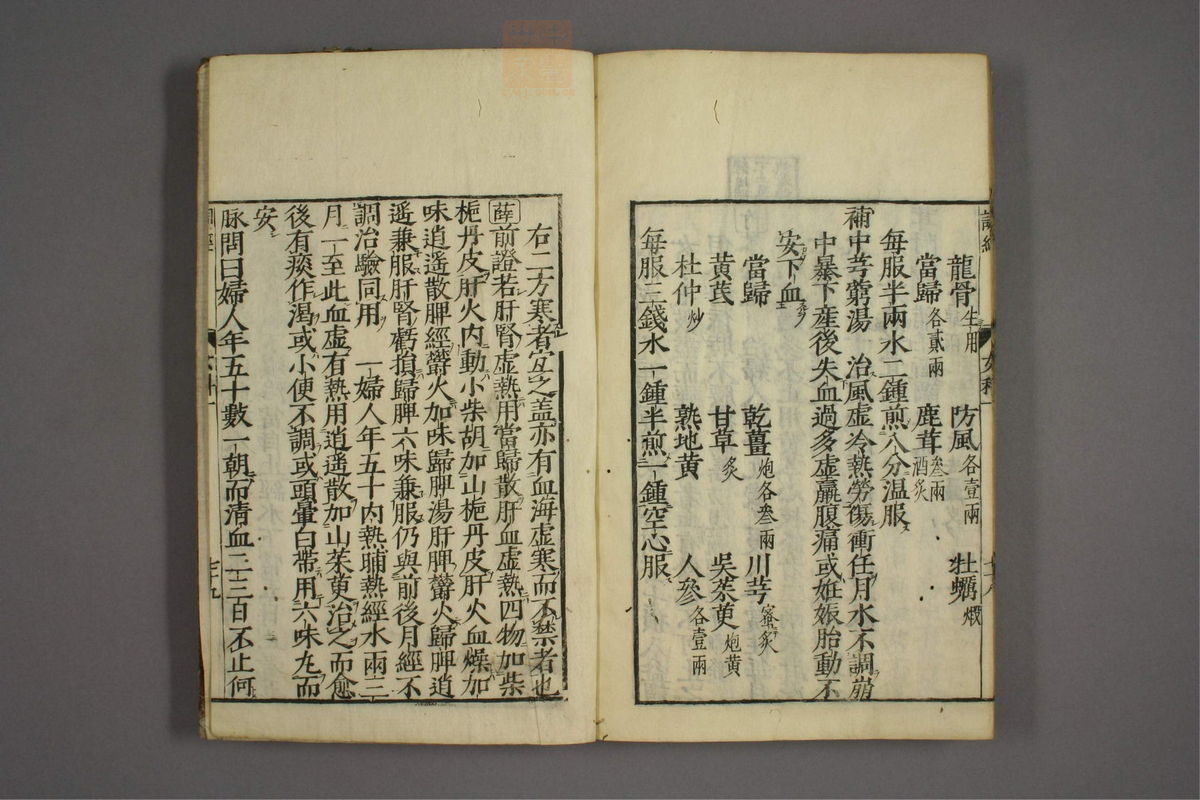 龍骨生用　防風各壹兩　牡蠣煆
當歸各貳兩　鹿茸叁兩酒炙
每服半兩水二鍾煎八分溫服
補中芎藭湯　治風虛冷熱勞傷衝任月水不調崩
中暴下產後失血過多虛羸腹痛或姙娠胎動不
安下血
當歸　乾薑炮各叁兩　川芎蜜炙
黃茋　甘草炙　吳茱萸炮黃
杜仲炒　熟地黃　人參各壹兩
每服三錢水一鍾半煎一鍾空心服
右二方寒者宜之蓋亦有血海虛寒而不禁者也
薛前證若肝腎虛熱用當歸散肝血虛熱四物加柴
梔丹皮肝火內動小柴胡加山梔丹皮肝火血燥加
味逍遙散脾經鬱火加味歸脾湯肝脾鬱火歸脾逍
遙兼服肝腎虧損歸脾六味兼服仍與前後月經不
調治驗同用　一婦人年五十內熱晡熱經水兩三
月一至此血虛有熱用逍遙散加山茱萸治之而愈
後有痰作渴或小便不調或頭暈白帶用六味丸而
安
脉問曰婦人年五十數一朝而清血二三日不止何
女科